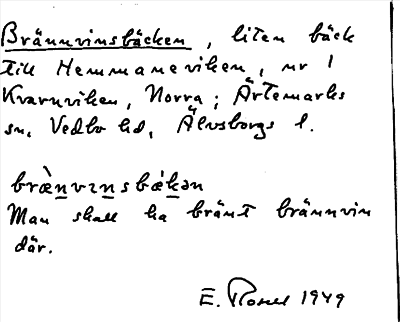 Brännvinsbäcken, liten bäck
till Hemmaneviken, nr 1
Kvarnviken, Norra; Ärtemarks
sn. Vedbo hd, Älvsborgs l.
bræ̀n̲vɪn̲sbækən
Man skall ha bränt brännvin
där.
E. 1949